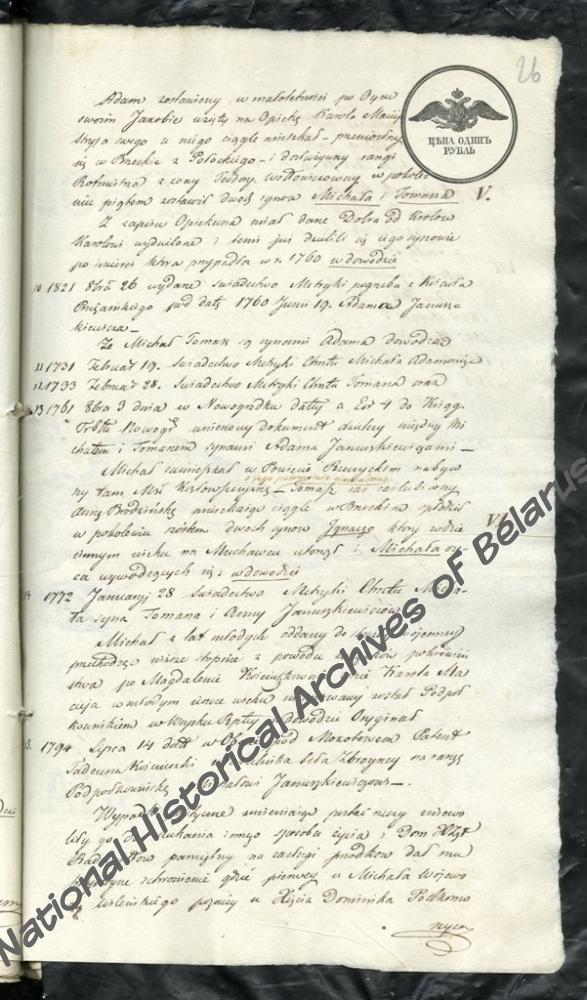 26
ЦѢНА ОДИНЪ
РУБЛЬ
Adam zostawiony w małoletności po Oycu
swoim Jakobie wzięty na Opiekę Karola Macieja
Stryja swego u niego ciągle mieszkał
się w Brzeskie z Połockiego i dosłużywszy rangi
Rotmistrza z żony Teodory w pokole
niu piątem zostawił dwóch synów Michała i Tomasza V.
Z zapisu Opiekuna miał dane Dobra od Królow
Karolowi wydzielone i temi już dzielili się jego synowie
po śmierci która przypadła w r. 1760 w dowodzie
10 1821 8bra 26 wydane świadectwo Metryki pogrzebu z Kościoła
Prużańskiego pod datą 1760 Junii 19. Adama Janusz-
kiewicza
Że Michał Tomasz są synami Adama dowodzą
11 1731 Februar 19. Świadectwo Metryki Chrztu Michała Adamowicza
12 1733 Februar 28. Świadectwo Metryki Chrztu Tomasza oraz
13 1761 8bra 3 dnia w Nowogródku datty a 4 do Xiąg
Trbłu Nowogr. wniesiony dokument dzielczy między Mi
chałem i Tomaszem synami Adama Januszkiewiczami
Michał zamieszkał w Powiecie Rzeczyckim nabyw
szy tam Mśc Tomasz zaś zaślubiwszy
Annę Brodzińską mieszkając ciągle w Brzeskim spłodził
w pokoleniu szóstem dwoch synow Ignacego który w dzie VI.
cinnym wieku na Muchawcu utonął i Michała oy-
ca wywodzących się: w dowodzie
14 1772 Januarij 28 Świadectwo Metryki Chrztu Micha-
ła syna Tomasza i Anny Januszkiewiczow
Michał z lat młodych oddany do wojennej
przechodząc niższe stopnie z powodu pokrewień
stwa po Magdalenie Kościuszkownie żonie Karola Ma
cieja w młodym ieszcze wieku mianowany został Podpół
kownikiem w Woysku Rpltey w dowodzie Oryginał
15. 1794 Lipca 14 datt w Obozie pod Mokotowem Patent
Tadeusza Kościuszki Naczelnika Siły Zbroyney na rangę
Podpółkownika Michałowi Januszkiewiczowi
Wypadki zmieniając postać rzeczy
ły go do szukania innego sposobu życia i Dom XXżąt
Radziwiłłow pamiętny na zasługi przodkow dał mu
schronienie gdzie pierwey u Michała Wojewo
dy Wileńskiego poźniey u Xięcia Dominika Podkomo
rzyca
National Historical Archives of Belarus